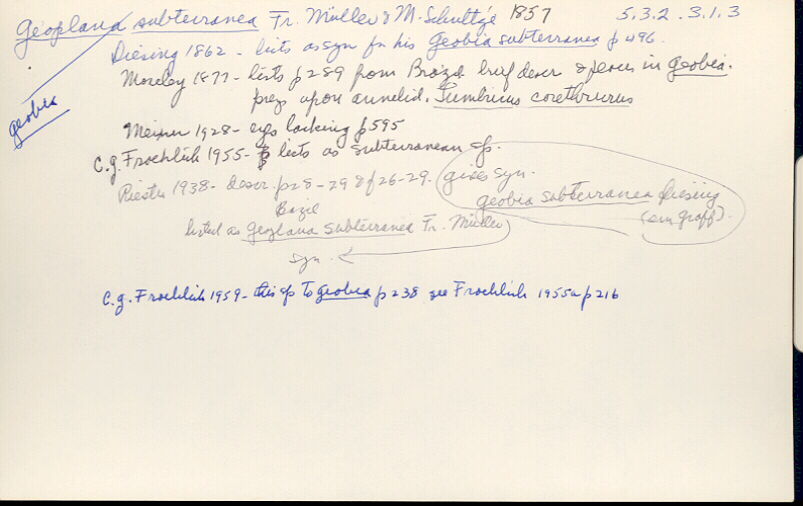 Geoplana subterranea Fr. Müller & M. Schultze 1857 5.3.2.3.1.3
Diesing 1862 - lists as syn for his Geobia subterranea p 496
Moseley 1877 - lists p 289 from Brazil brief descr & places in Geobia.
preys upon annelid. Lumbricus corethrurus
geobia
Meixner 1928 - eyes lacking p 595
C.g. Froehlich 1955 - lists as subterranean sp.
Riester 1938 - descr p 28-29 & f 26-29. gives syn.
Geobia subterranea Diesing
Brazil
(em Graff).
listed as Geoplana subterranea Fr. Müller
syn.
C.g. Froehlich 1959 - this sp to geobia p 238 see Froehlich 1955a p 216